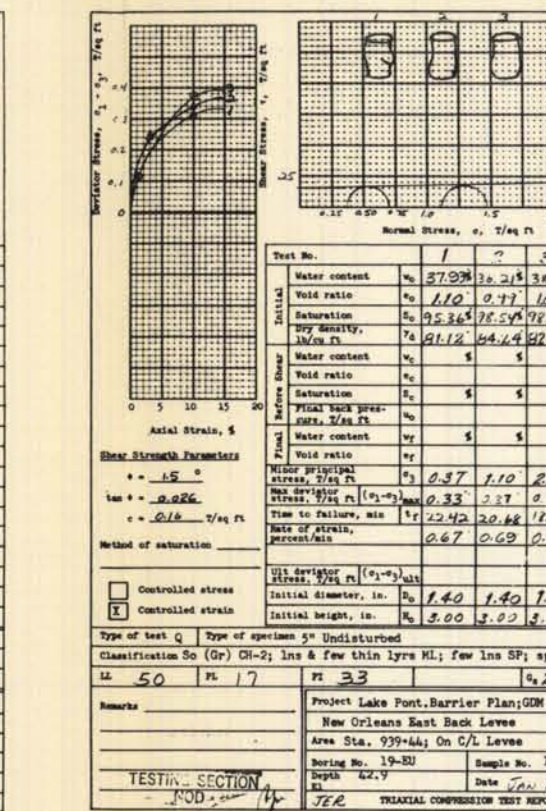 1 2 3
Deviator Stress, σ1 - σ3, T/sq ft
Shear Stress, τ, T/sq ft
0.4
0.2
0.1
0
.25
0.25 0.50 0.75 1.0 1.5
Normal Stress, σ, T/sq ft
0 5 10 15 20
Axial Strain, %
Shear Strength Parameters
φ = 1.5 °
tan φ = 0.026
c = 0.16 T/sq ft
Method of saturation
Controlled stress
X Controlled strain
Test No. 1 2 3
Initial
Water content wo 37.93% 36.21%
Void ratio eo 1.10 0.99
Saturation So 95.36% 98.54% 98
Dry density, lb/cu ft γd 81.12 84.64 82
Before Shear
Water content wc % %
Void ratio ec
Saturation Sc % %
Final back pressure, T/sq ft uo
Final
Water content wf % %
Void ratio ef
Minor principal stress, T/sq ft σ3 0.37 1.10 2.
Max deviator stress, T/sq ft (σ1-σ3)max 0.33 0.37 0.
Time to failure, min tf 22.42 20.68 18
Rate of strain, percent/min 0.67 0.69 0.
Ult deviator stress, T/sq ft (σ1-σ3)ult
Initial diameter, in. Do 1.40 1.40 1.
Initial height, in. Ho 3.00 3.00 3.
Type of test Q Type of specimen 5" Undisturbed
Classification So (Gr) CH-2; lns & few thin lyrs ML; few lns SP;
LL 50 PL 17 PI 33 Gs 2
Remarks
Project Lake Pont.Barrier Plan;GDM
New Orleans East Back Levee
Area Sta. 939+44; On C/L Levee
Boring No. 19-EU Sample No.
Depth El 42.9 Date JAN
TESTING SECTION
NOD
JER TRIAXIAL COMPRESSION TEST